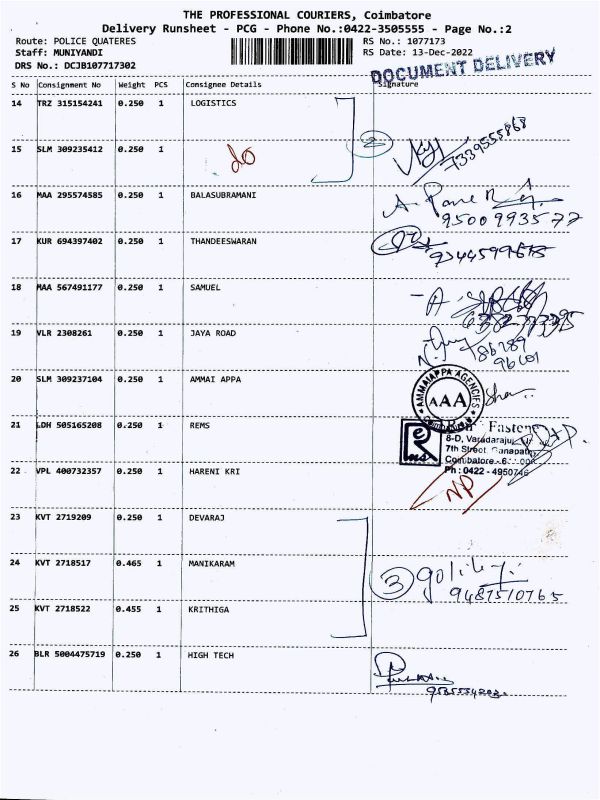 THE PROFESSIONAL COURIERS, Coimbatore
Delivery Runsheet - PCG - Phone No.:0422-3505555 - Page No.:2
Route: POLICE QUATERES RS No.: 1077173
Staff: MUNIYANDI RS Date: 13-Dec-2022
DRS No.: DCJB107717302
DOCUMENT DELIVERY
S No Consignment No Weight PCS Consignee Details Signature
14 TRZ 315154241 0.250 1 LOGISTICS
2
15 SLM 309235412 0.250 1
do
7339555868
16 MAA 295574585 0.250 1 BALASUBRAMANI
9500993577
17 KUR 694397402 0.250 1 THANDEESWARAN
18 MAA 567491177 0.250 1 SAMUEL
19 VLR 2308261 0.250 1 JAYA ROAD
20 SLM 309237104 0.250 1 AMMAI APPA
AMMAIAPPA AGENCIES
AAA
21 LDH 505165208 0.250 1 REMS
Fasten
8-D, Varadaraju
7th Street, Ganapathy
Coimbatore - 6
Ph : 0422 - 4950746
22 VPL 400732357 0.250 1 HARENI KRI
NP
23 KVT 2719209 0.250 1 DEVARAJ
24 KVT 2718517 0.465 1 MANIKARAM
3
9487510765
25 KVT 2718522 0.455 1 KRITHIGA
26 BLR 5004475719 0.250 1 HIGH TECH